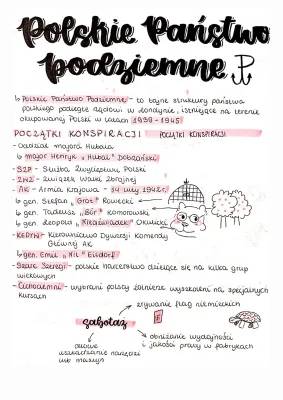 Polskie Państwo
Podziemne
↳ Polskie Państwo Podziemne - to tajne struktury państwa
polskiego podległe rządowi w Londynie, istniejące na terenie
okupowanej Polski w latach 1939-1945.
POCZĄTKI KONSPIRACJI POCZĄTKI KONSPIRACJI
- Oddział majora Hubala
↳ major Henryk „Hubal" Dobrzański
- SZP - Służba Zwycięstwu Polski
- ZWZ - Związek Walki Zbrojnej
- AK - Armia Krajowa - 14 luty 1942r.
↳ gen. Stefan „Grot" Rowecki
↳ gen. Tadeusz „Bór" Komorowski
↳ gen. Leopold „Niedźwiadek" Okulicki
- KEDYW - Kierownictwo Dywersji Komendy
Głównej AK
↳ gen. Emil „Nil" Fieldorf
- Szare Szeregi - polskie harcerstwo dzielące się na kilka grup
wiekowych
- Cichociemni - wybrani polscy żołnierze wyszkoleni na specjalnych
kursach
zrywanie flag niemieckich
sabotaż
celowe
uszkadzanie narzędzi
lub maszyn
obniżanie wydajności
i jakości pracy w fabrykach